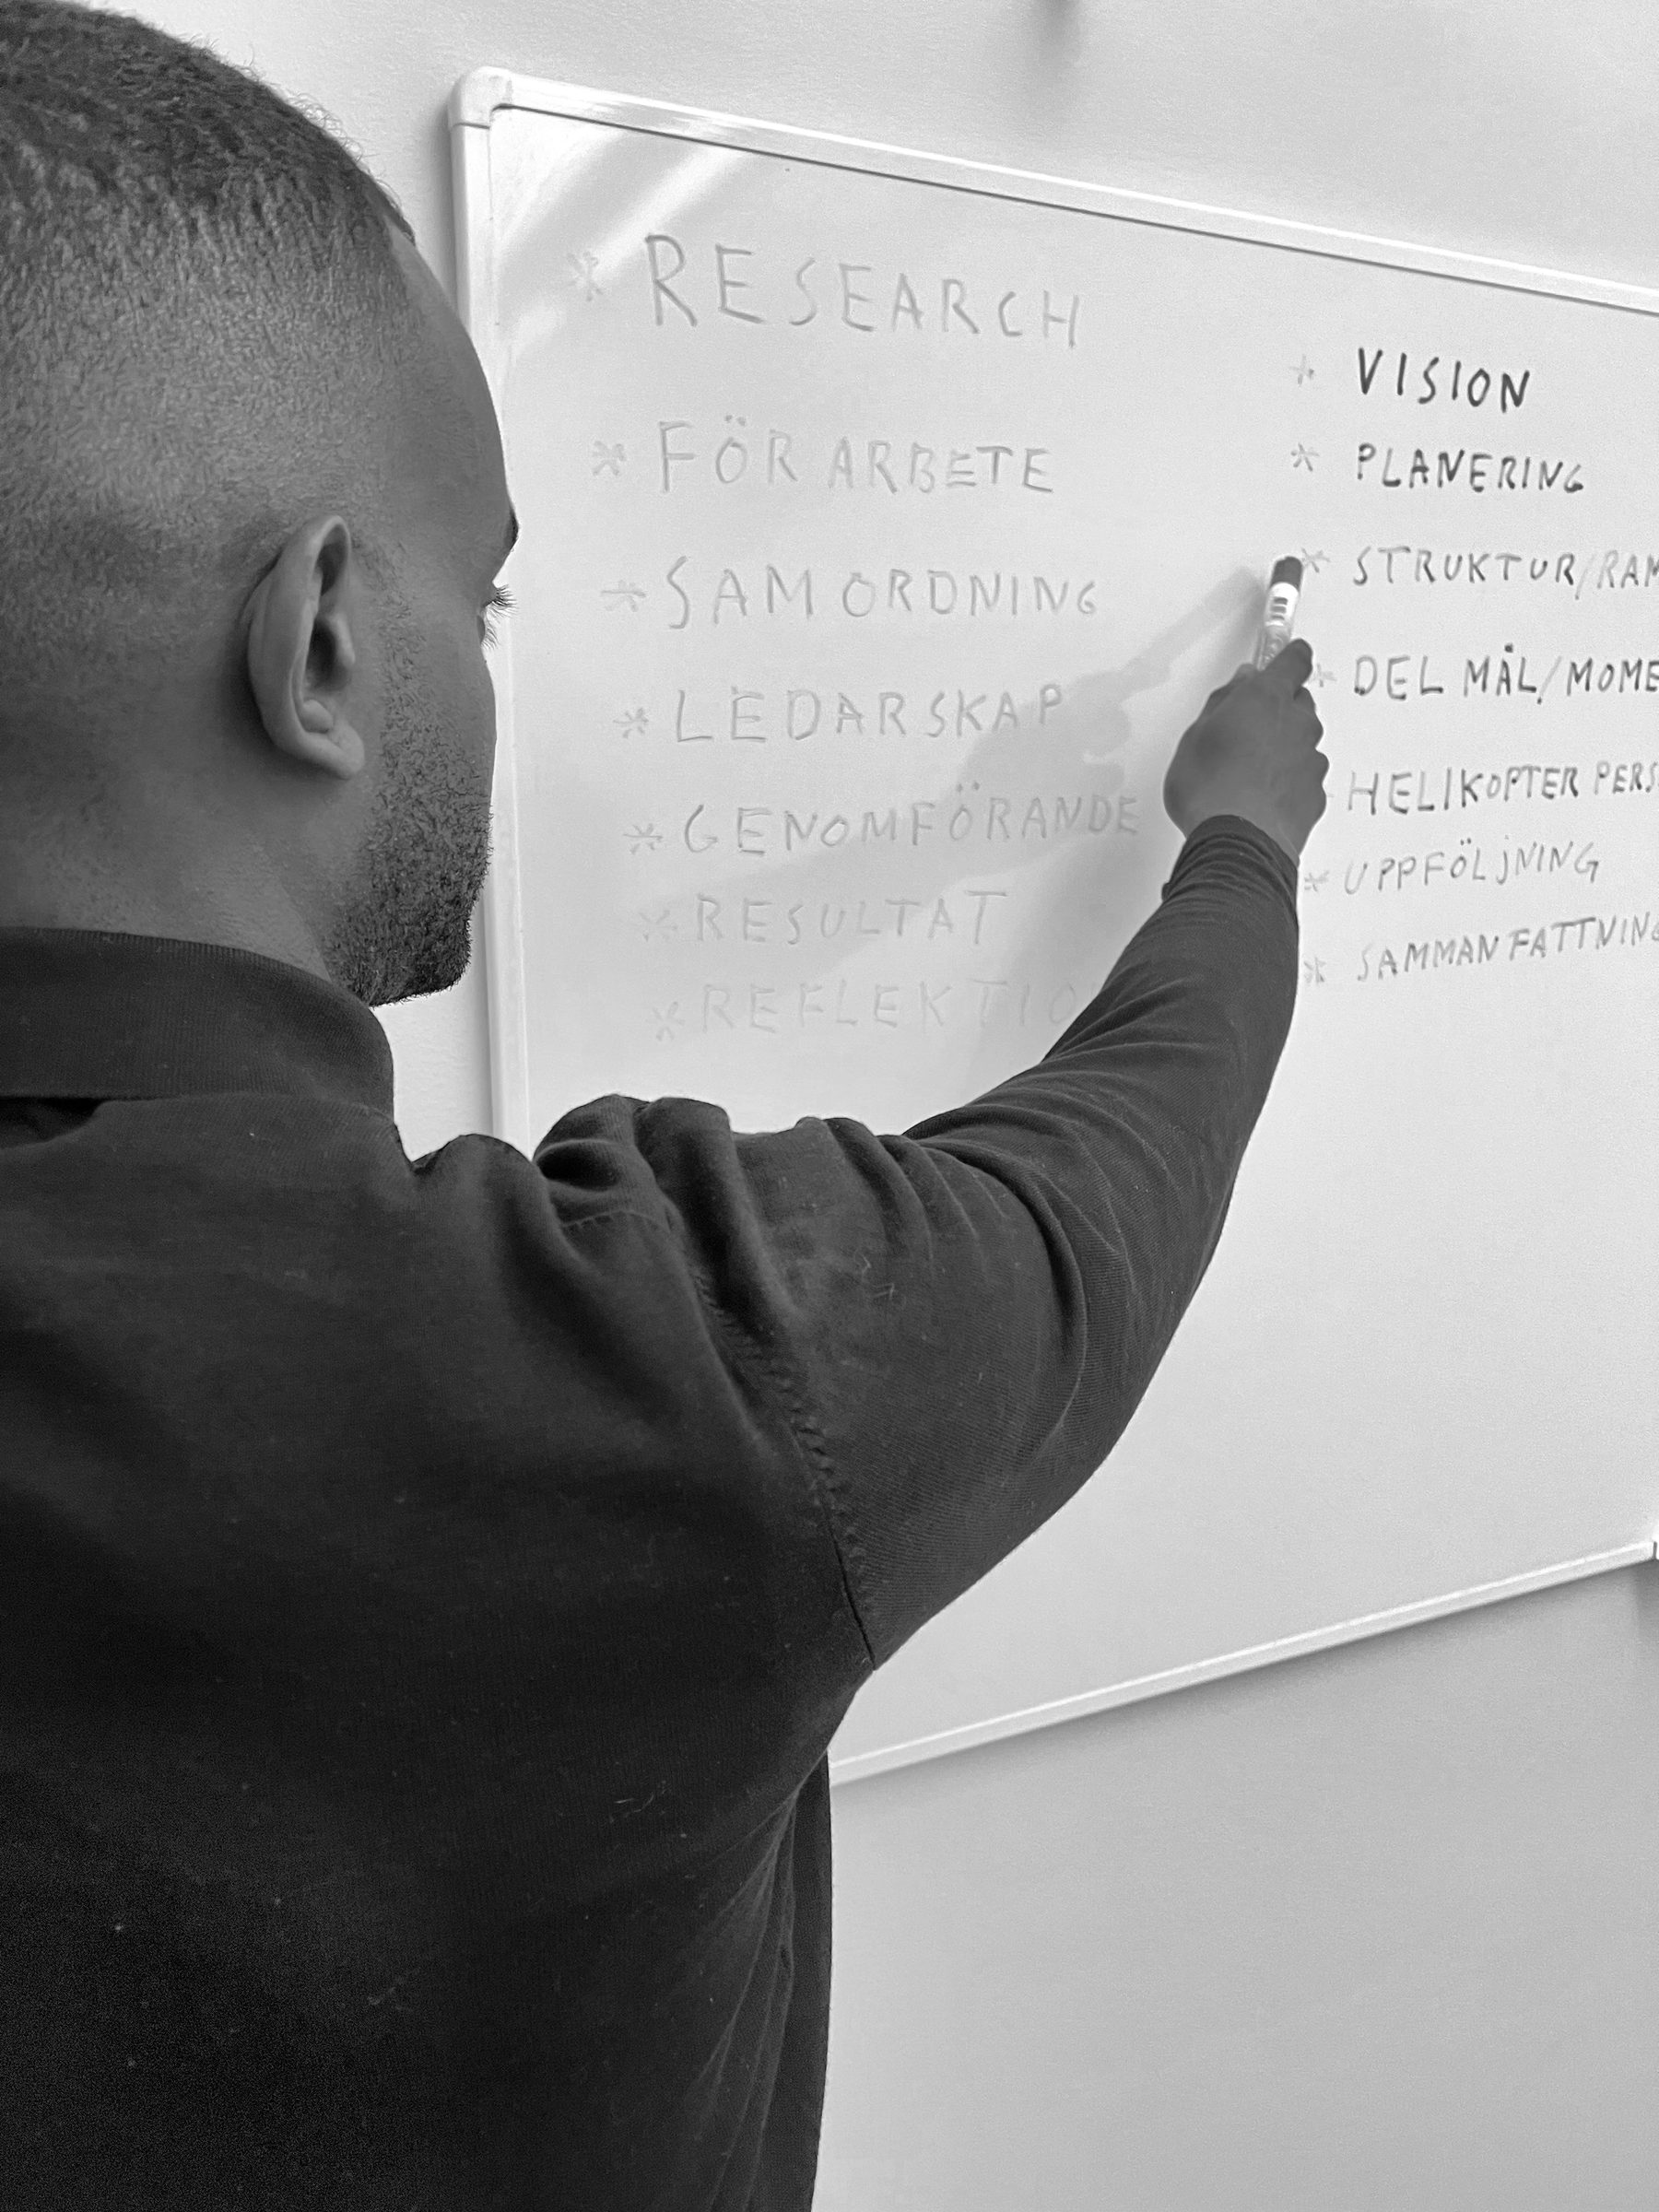 * RESEARCH
* FÖRARBETE
* SAMORDNING
* LEDARSKAP
* GENOMFÖRANDE
* RESULTAT
* REFLEKTIO
* VISION
* PLANERING
* STRUKTUR/RAM
* DELMÅL/MOME
HELIKOPTER PERS
* UPPFÖLJNING
* SAMMANFATTNING